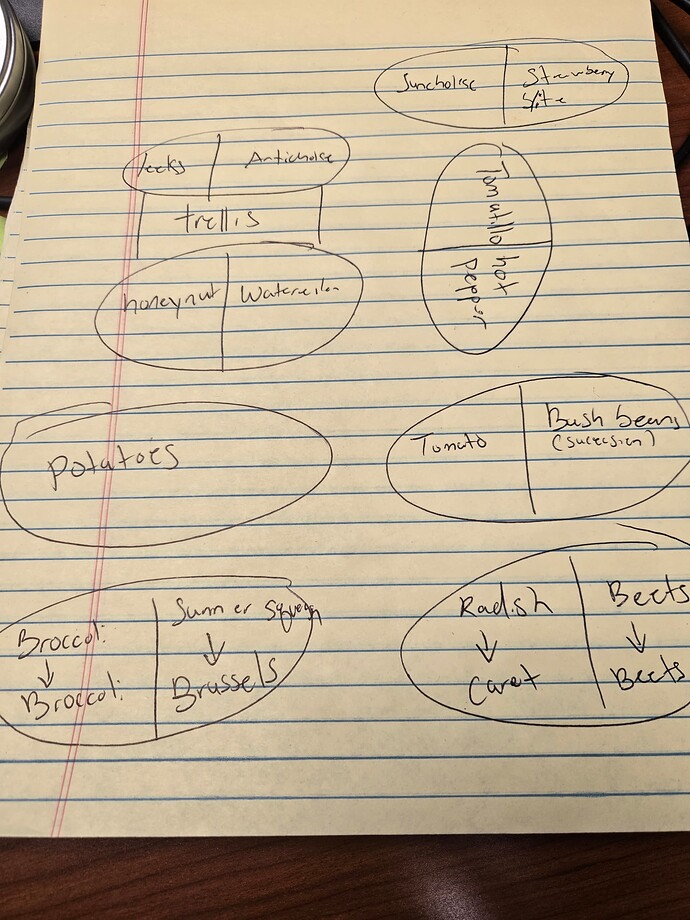 Sunchoke
Strawberry
Spite
leeks
Artichoke
trellis
Tomatillo
hot
pepper
honeynut
Watermelon
Potatoes
Tomato
Bush beans
(sucession)
Broccoli
↓
Broccoli
Summer Squash
↓
Brussels
Radish
↓
Carot
Beets
↓
Beets